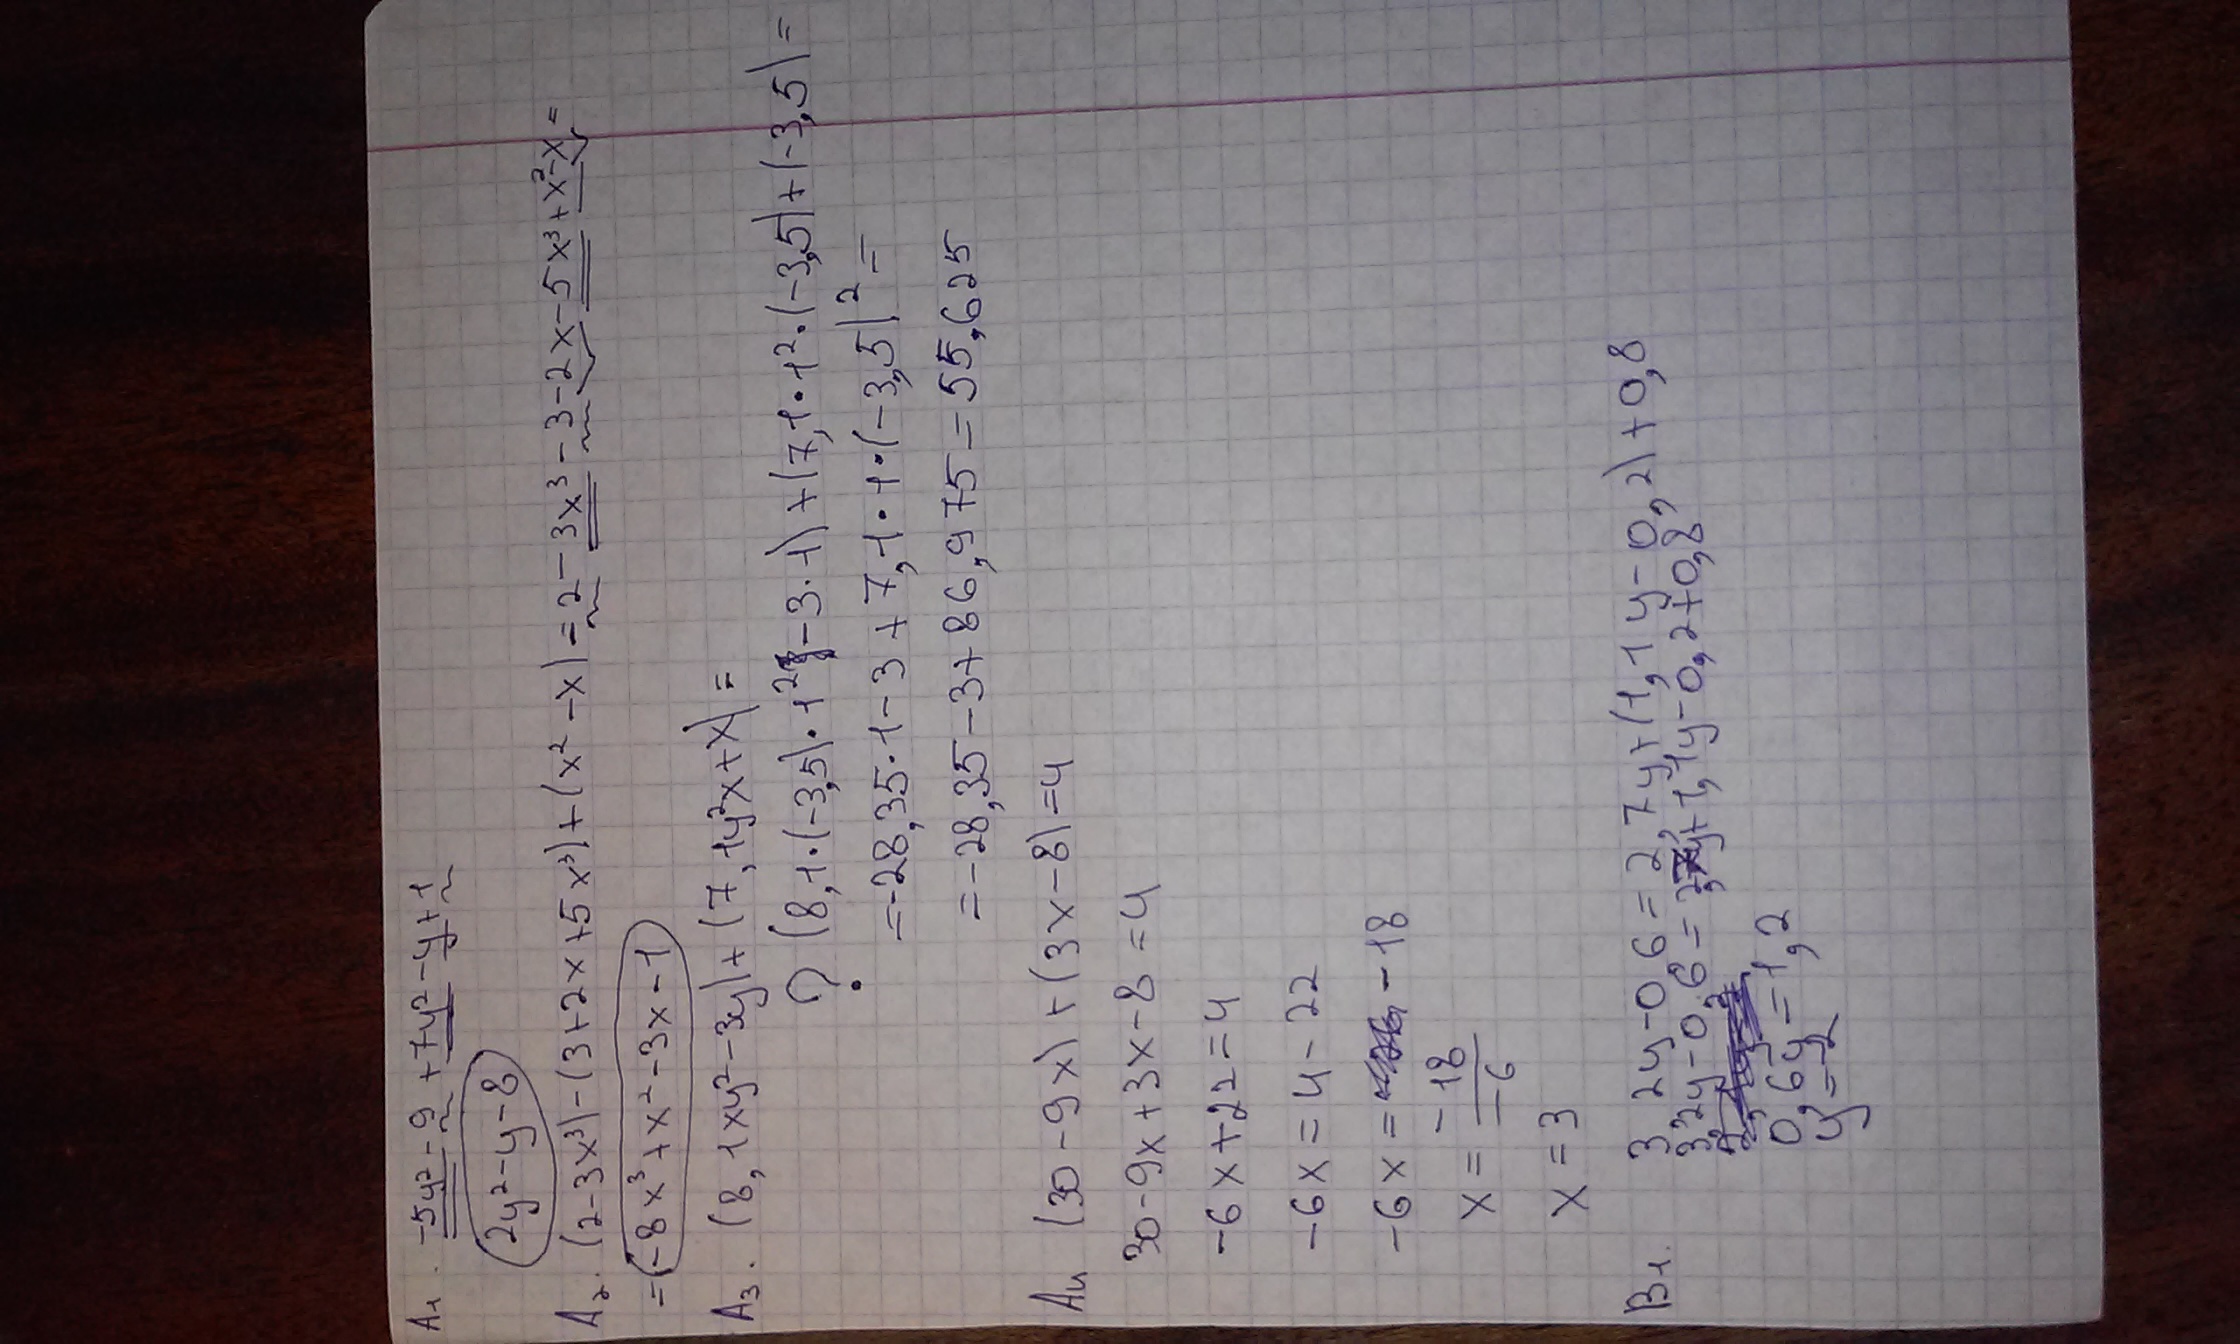 A₁. -5y² - 9 + 7y² - y + 1
2y² - y - 8
A₂. (2-3x³) - (3+2x+5x³) + (x²-x) = 2 - 3x³ - 3 - 2x - 5x³ + x² - x =
= -8x³ + x² - 3x - 1
A₃. (8,1xy² - 3y) + (7,1y²x + x) =
? (8,1·(-3,5)·1² - 3·1) + (7,1·1²·(-3,5) + (-3,5) =
= -28,35·1 - 3 + 7,1·1·(-3,5)² =
= -28,35 - 3 + 86,975 = 55,625
A₄ (30 - 9x) + (3x - 8) = 4
30 - 9x + 3x - 8 = 4
-6x + 22 = 4
-6x = 4 - 22
-6x = -18
x = -18/-6
x = 3
B₁. 3,2y - 0,6 = 2,7y + (1,1y - 0,2) + 0,8
3,2y - 0,6 = 2,7y + 1,1y - 0,2 + 0,8
0,6y = 1,2
y = 2